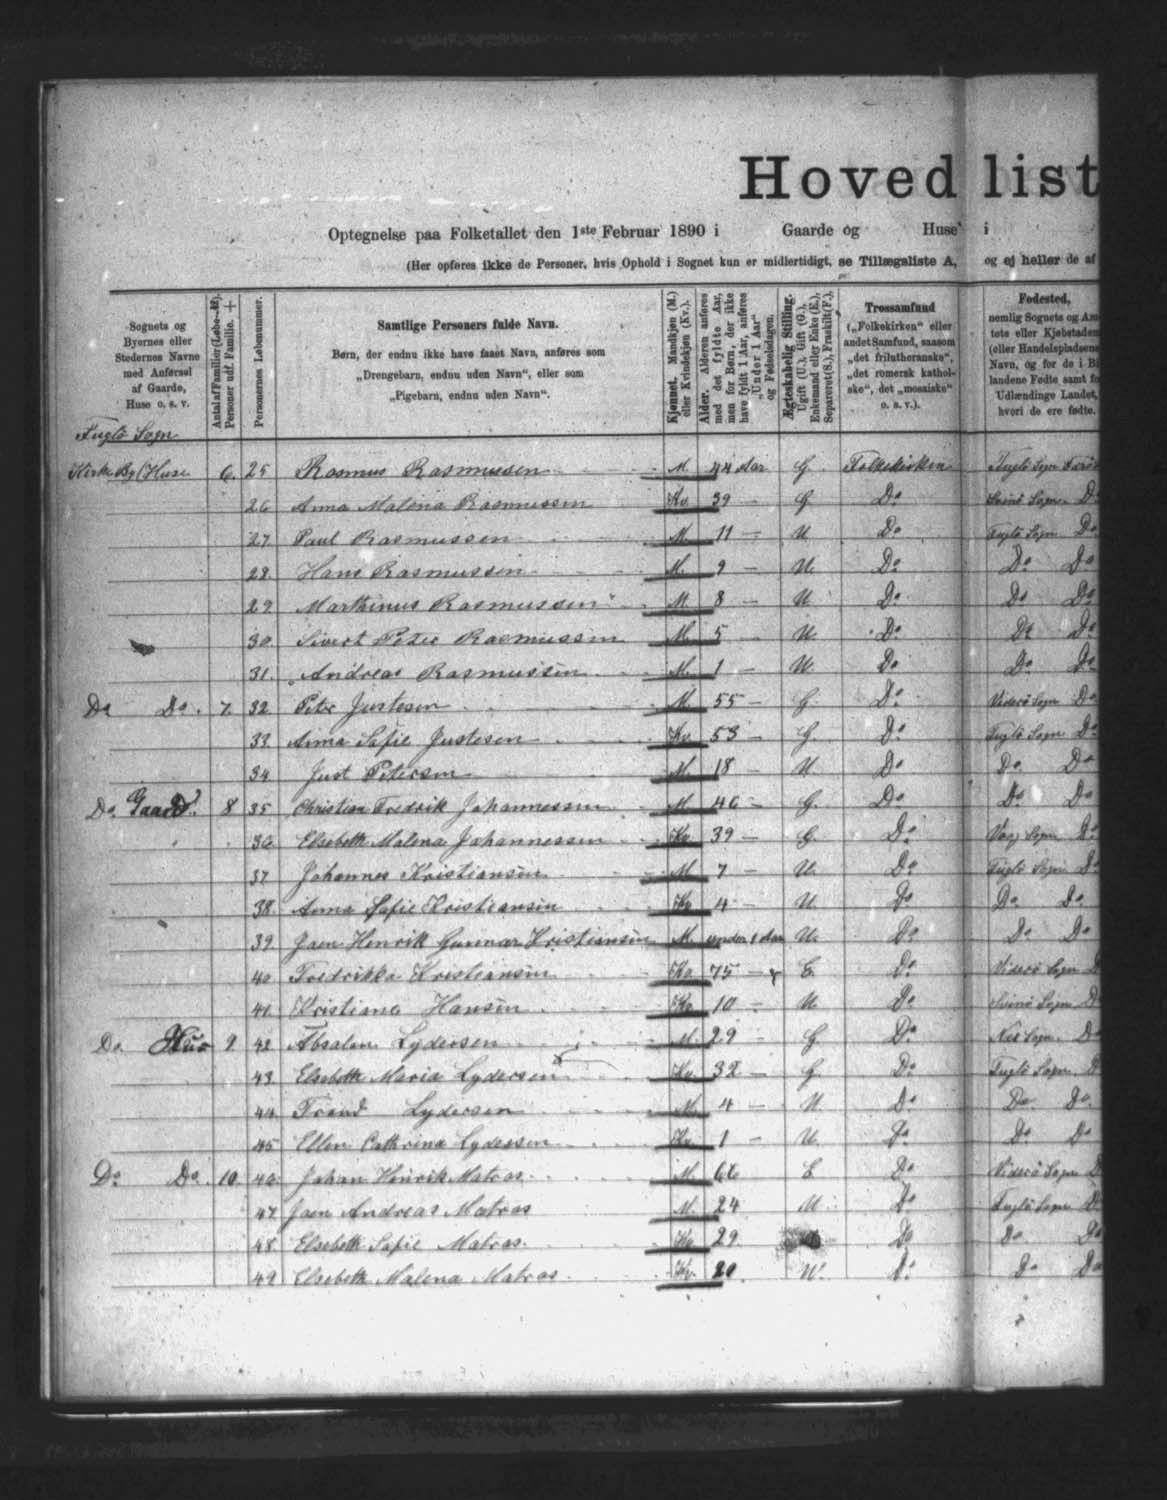 Hovedlist
Optegnelse paa Folketallet den 1ste Februar 1890 i Gaarde og Huse i
(Her opføres ikke de Personer, hvis Ophold i Sognet kun er midlertidigt, se Tillægsliste A, og ej heller de af
Sognets og Byernes eller Stedernes Navne med Anførsel af Gaarde, Huse o. s. v.
Antal af Familier (Løbe-№).
Personer udf. Familie. +
Personernes Løbenummer.
Samtlige Personers fulde Navn.
Børn, der endnu ikke have faaet Navn, anføres som
„Drengebarn, endnu uden Navn“, eller som
„Pigebarn, endnu uden Navn“.
Kjønnet. Mandkjøn (M.) eller Kvindekjøn (Kv.).
Alder. Alderen anføres med det fyldte Aar, men for Børn, der ikke have fyldt 1 Aar, anføres „Under 1 Aar“ og Fødselsdagen.
Ægteskabelig Stilling. Ugift (U.), Gift (G.), Enkemand eller Enke (E.), Separeret (S.), Fraskilt (F.).
Trossamfund
(„Folkekirken“ eller andet Samfund, saasom „det frilutheranske“, „det romersk kathol- ske“, det „mosaiske“ o. s. v.).
Fødested,
nemlig Sognets og Am
tets eller Kjøbstaden
(eller Handelspladsens
Navn, og for de i Bi
landene Fødte samt fo
Udlændinge Landet,
hvori de ere fødte.
Fuglø Sogn
Kirke By (Huse 6. 25 Rasmus Rasmussen M. 44 Aar G. Folkekirken Fuglø Sogn Færø
26 Anna Malena Rasmussen Kv. 39 — G Do Svinø Sogn Do
27. Paul Rasmussen M. 11 — U Do Fuglø Sogn Do
28. Hans Rasmussen M. 9 — U. Do Do Do
29. Marthinus Rasmussen M 8 — U. Do Do Do
30. Sivert Peter Rasmussen M. 5 U. Do Do Do
31. Andreas Rasmussen M. 1 — U. Do Do Do
Do Do. 7. 32 Peter Justesen M. 55 — G. Do Viderø Sogn Do
33. Anna Safie Justesen Kv. 53 — G. Do Fuglø Sogn Do
34 Just Petersen M. 18 — U. Do Do Do
Do. Gaard 8 35 Christian Fredrik Johannessen M 46 — G. Do Do Do
36. Elsebeth Malena Johannessen Kv. 39 — G. Do Sogn Do
37 Johannes Kristiansen M 7 — U. Do Fuglø Sogn Do
38. Anna Safie Kristiansen Kv 4 — U. Do Do Do
39. Joen Henrik Gunnar Kristiansen M. under 1 Aar U. Do Do Do
40 Fredrikka Kristiansen Kv 75 — E. Do Viderø Sogn D
41. Kristiane Hansen Kv 10 — U. Do Svinø Sogn D
Do. Hus 9 42 Absalon Lydersen M. 29 — G. Do Nes Sogn. Do
43. Elsebeth Maria Lydersen Kv. 32 — G Do Fuglø Sogn. D
44. Trond Lydersen M. 4 — U Do Do Do.
45 Ellen Cathrina Lydersen Kv. 1 — U. Do Do Do
Do Do. 10. 46. Johan Henrik Matras. M. 66 E. Do Viderø Sogn D
47 Joen Andreas Matras M. 24 U. Do Fuglø Sogn D
48. Elsebeth Safie Matras. Kv 29 Do Do Do
49 Elsebeth Malena Matras. Kv. 20 U. Do Do Do